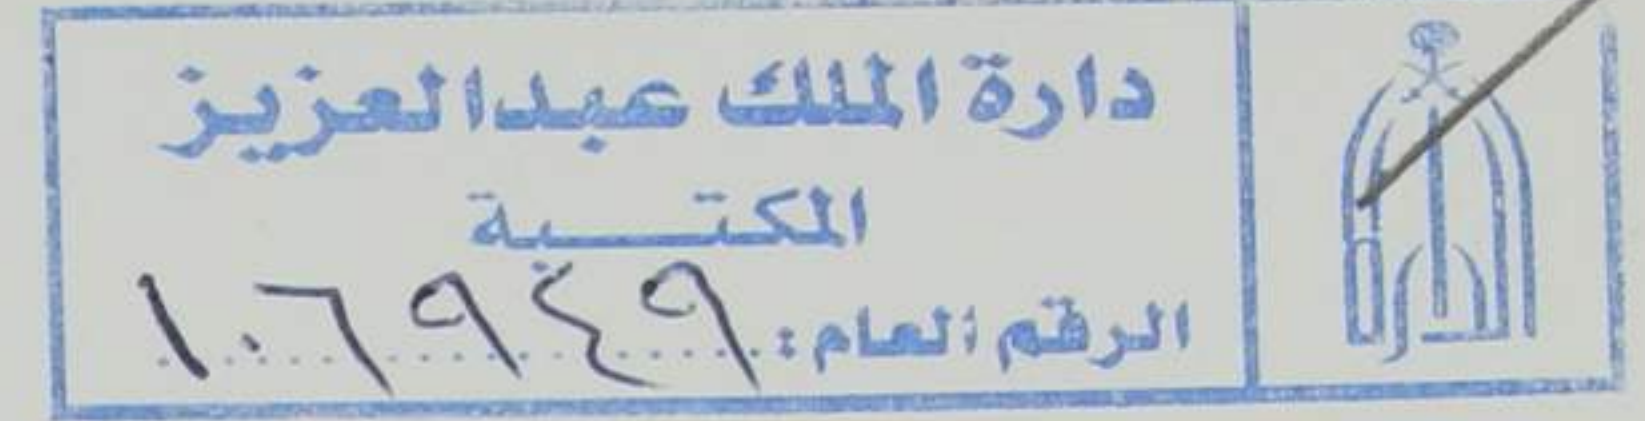 دارة الملك عبدالعزيز
المكتبة
الرقم العام: ١٠٦٩٤٩